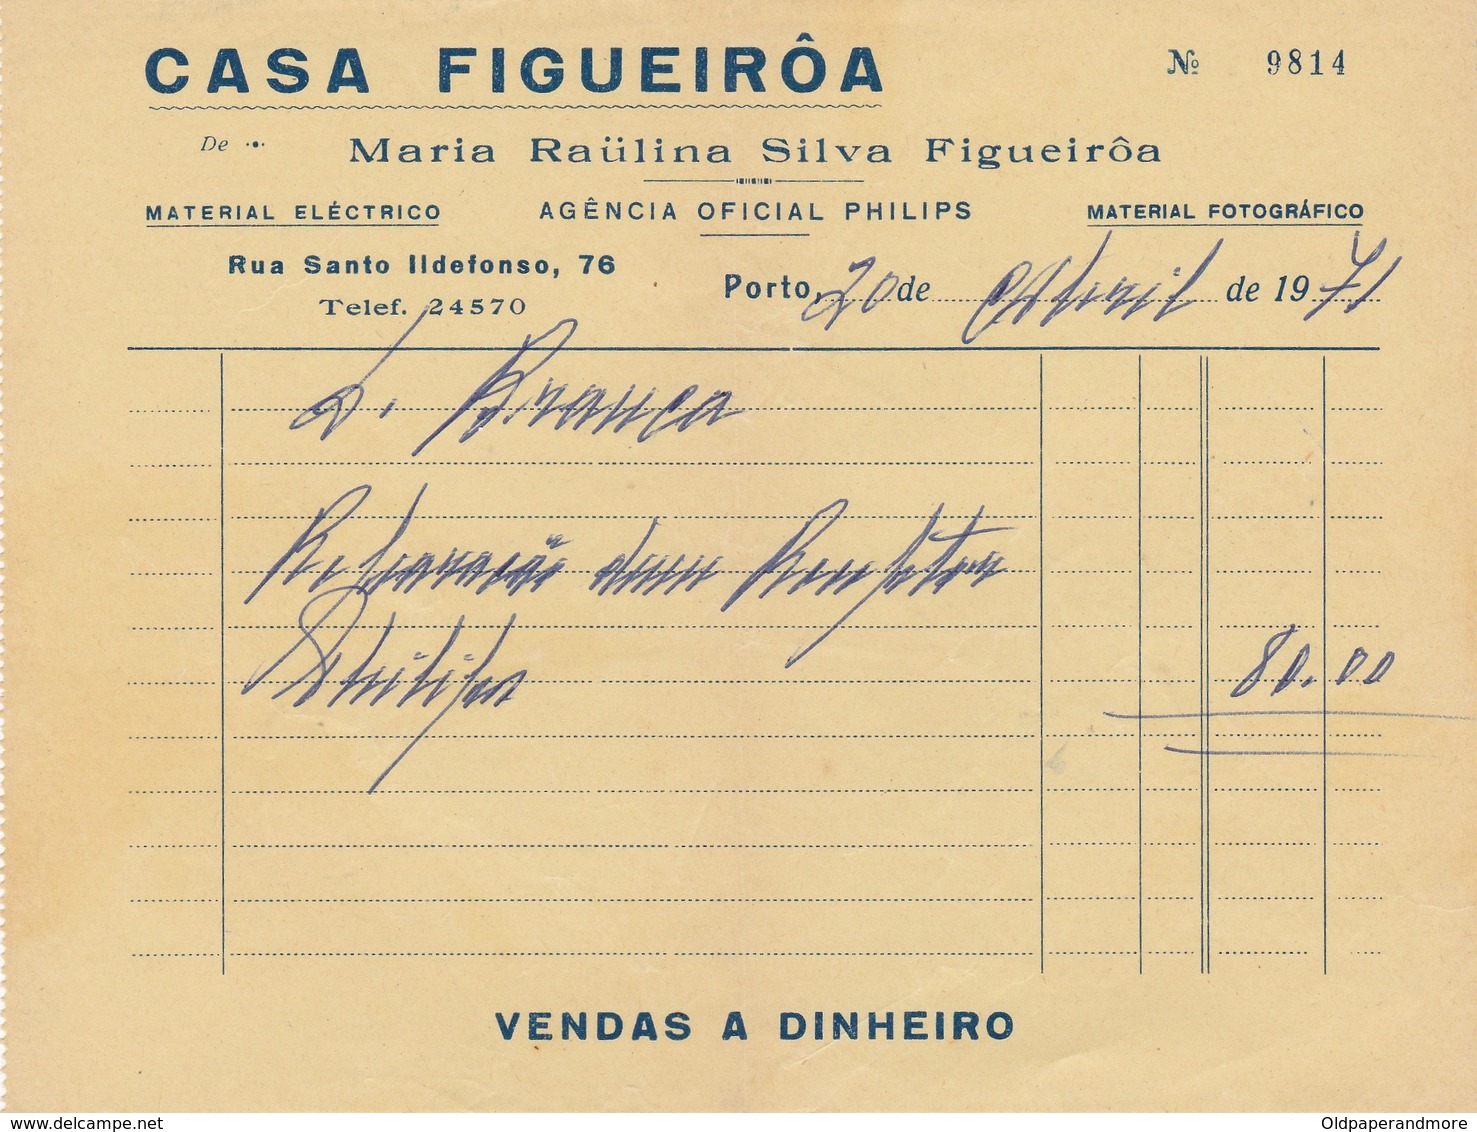 CASA FIGUEIRÔA
Nº 9814
De Maria Raülina Silva Figueirôa
MATERIAL ELÉCTRICO AGÊNCIA OFICIAL PHILIPS MATERIAL FOTOGRÁFICO
Rua Santo Ildefonso, 76
Telef. 24570
Porto, 20 de Abril de 1971
D. Branca
Reparação dum
Philips 80.00
VENDAS A DINHEIRO
Oldpaperandmore